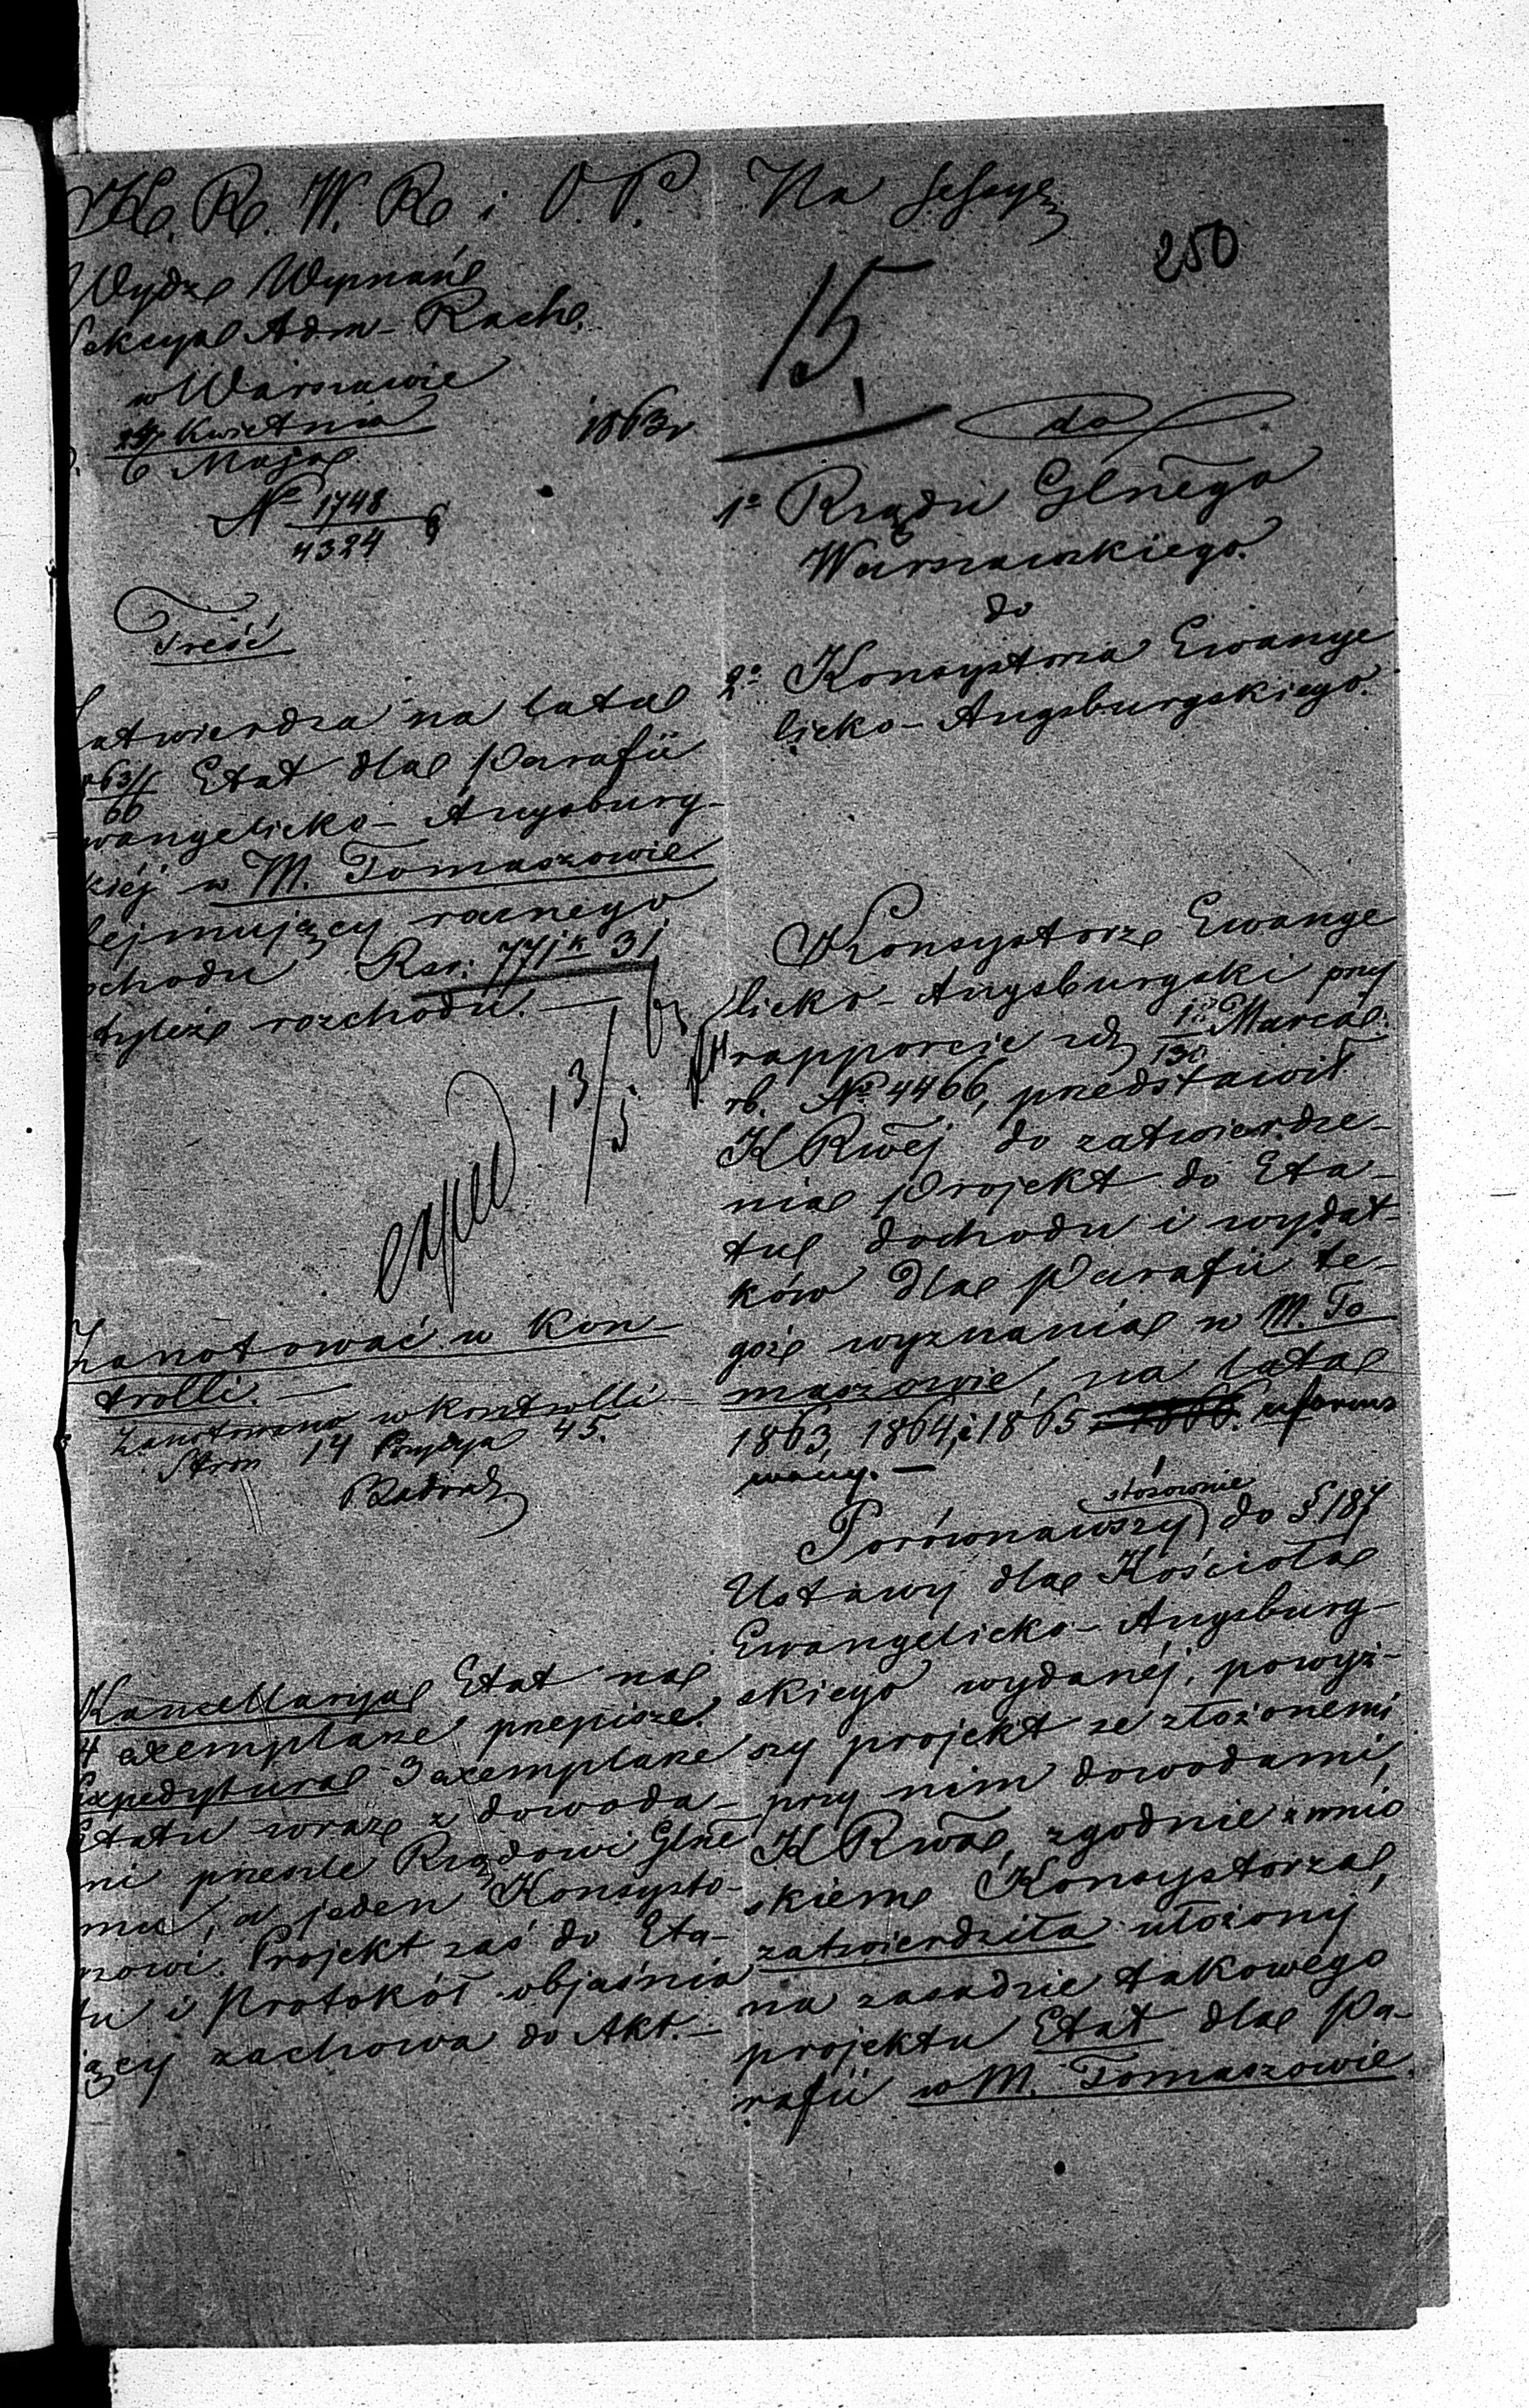 K. R. W. R. i O. P.
Wydz. Wyznań
Sekcya Adm-Rach.
w Warszawie
24 Kwietnia
6 Maja
1863 r
No 1748
4324
Treść
atwierdza na lata
863/
66 Etat dla Parafii
wangelicko-Augsburg-
kiéj w M. Tomaszowie
ejmujący rocznego
chodu Rsr: 771 k 31
tyleż rozchodu. —
exped 13/5
Zanotować w Kon-
trolli. —
Zanotowano w Kontrolli
Stron 14 Pozycya 45.
Kancellarya Etat na
4 exemplarze przepisze.
Expedytura 3 exemplarze
Etatu wraz z dowoda-
mi prześle Rządowi Glne
mu, a jeden Konsysto-
rzowi. Projekt zaś do Eta-
tu i Protokół objaśnia
jący zachowa do Akt. —
Na Sessyę
250
15
do
1o Rządu Glnego
Warszawskiego.
do
2o Konsystorza Ewangie
licko-Augsburgskiego.
Konsystorz Ewange
licko-Augsburgski przy
rapporcie z d. 1/13 Marca
rb. No 4466, przedstawił
K Rwéj do zatwierdze-
nia Projekt do Eta-
tu dochodu i wydat-
ków dla Parafii te-
goż wyznania w M. To
maszowie, na lata
1863, 1864, i 1865 1866. uformo
wany. —
stósownie
Porównawszy do § 187
Ustawy dla Kościoła
Ewangelicko-Augsburg-
skiego wydanéj, powyż-
szy projekt ze złożonemi
przy nim dowodami,
K Rwa, zgodnie z wnio
skiem Konsystorza,
zatwierdziła ułożony
na zasadzie takowego
projektu Etat dla Pa-
rafii w M. Tomaszowie.